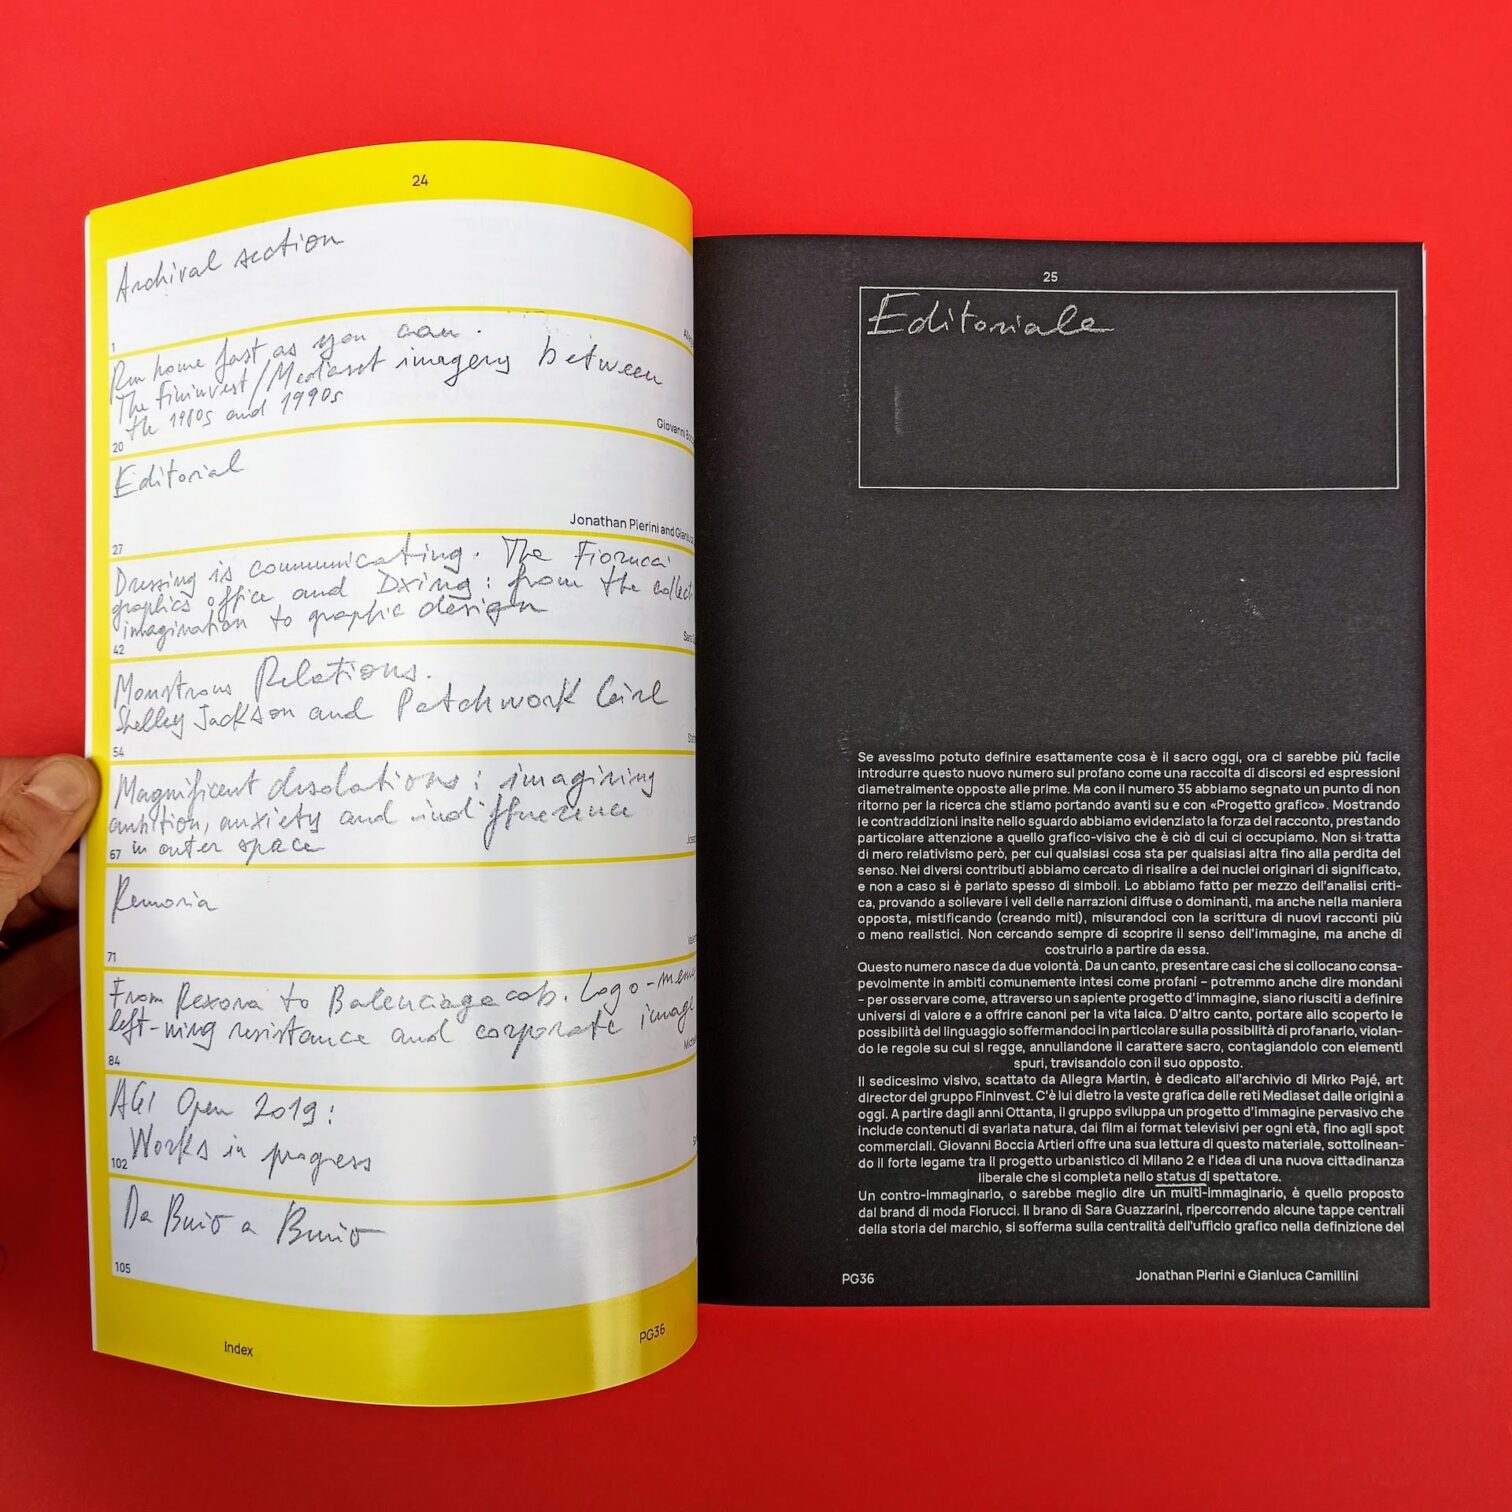 24
Archival section
1
Run home fast as you can.
The Fininvest/Mediaset imagery between
the 1980s and 1990s
20
Giovanni
Editorial
Jonathan Pierini and
27
Dressing is communicating. The Fiorucci
graphics office and Dxing: from the
imagination to graphic design
42
Monstrous Relations.
Shelley Jackson and Patchwork Girl
54
Magnificent desolations: imagining
ambition, anxiety and indifference
in outer space
67
Remoria
71
From Rexona to Balenciaga
left-wing resistance and corporate
84
AGI Open 2019:
Works in progress
102
Da Buio a Buio
105
Index
PG36
25
Editoriale
Se avessimo potuto definire esattamente cosa è il sacro oggi, ora ci sarebbe più facile
introdurre questo nuovo numero sul profano come una raccolta di discorsi ed espressioni
diametralmente opposte alle prime. Ma con il numero 35 abbiamo segnato un punto di non
ritorno per la ricerca che stiamo portando avanti su e con «Progetto grafico». Mostrando
le contraddizioni insite nello sguardo abbiamo evidenziato la forza del racconto, prestando
particolare attenzione a quello grafico-visivo che è ciò di cui ci occupiamo. Non si tratta
di mero relativismo però, per cui qualsiasi cosa sta per qualsiasi altra fino alla perdita del
senso. Nei diversi contributi abbiamo cercato di risalire a dei nuclei originari di significato,
e non a caso si è parlato spesso di simboli. Lo abbiamo fatto per mezzo dell'analisi criti-
ca, provando a sollevare i veli delle narrazioni diffuse o dominanti, ma anche nella maniera
opposta, mistificando (creando miti), misurandoci con la scrittura di nuovi racconti più
o meno realistici. Non cercando sempre di scoprire il senso dell'immagine, ma anche di
costruirlo a partire da essa.
Questo numero nasce da due volontà. Da un canto, presentare casi che si collocano consa-
pevolmente in ambiti comunemente intesi come profani – potremmo anche dire mondani
– per osservare come, attraverso un sapiente progetto d'immagine, siano riusciti a definire
universi di valore e a offrire canoni per la vita laica. D'altro canto, portare allo scoperto le
possibilità del linguaggio soffermandoci in particolare sulla possibilità di profanarlo, violan-
do le regole su cui si regge, annullandone il carattere sacro, contagiandolo con elementi
spuri, travisandolo con il suo opposto.
Il sedicesimo visivo, scattato da Allegra Martin, è dedicato all'archivio di Mirko Pajé, art
director del gruppo Fininvest. C'è lui dietro la veste grafica delle reti Mediaset dalle origini a
oggi. A partire dagli anni Ottanta, il gruppo sviluppa un progetto d'immagine pervasivo che
include contenuti di svariata natura, dai film ai format televisivi per ogni età, fino agli spot
commerciali. Giovanni Boccia Artieri offre una sua lettura di questo materiale, sottolinean-
do il forte legame tra il progetto urbanistico di Milano 2 e l'idea di una nuova cittadinanza
liberale che si completa nello status di spettatore.
Un contro-immaginario, o sarebbe meglio dire un multi-immaginario, è quello proposto
dal brand di moda Fiorucci. Il brano di Sara Guazzarini, ripercorrendo alcune tappe centrali
della storia del marchio, si sofferma sulla centralità dell'ufficio grafico nella definizione del
PG36
Jonathan Pierini e Gianluca Camillini